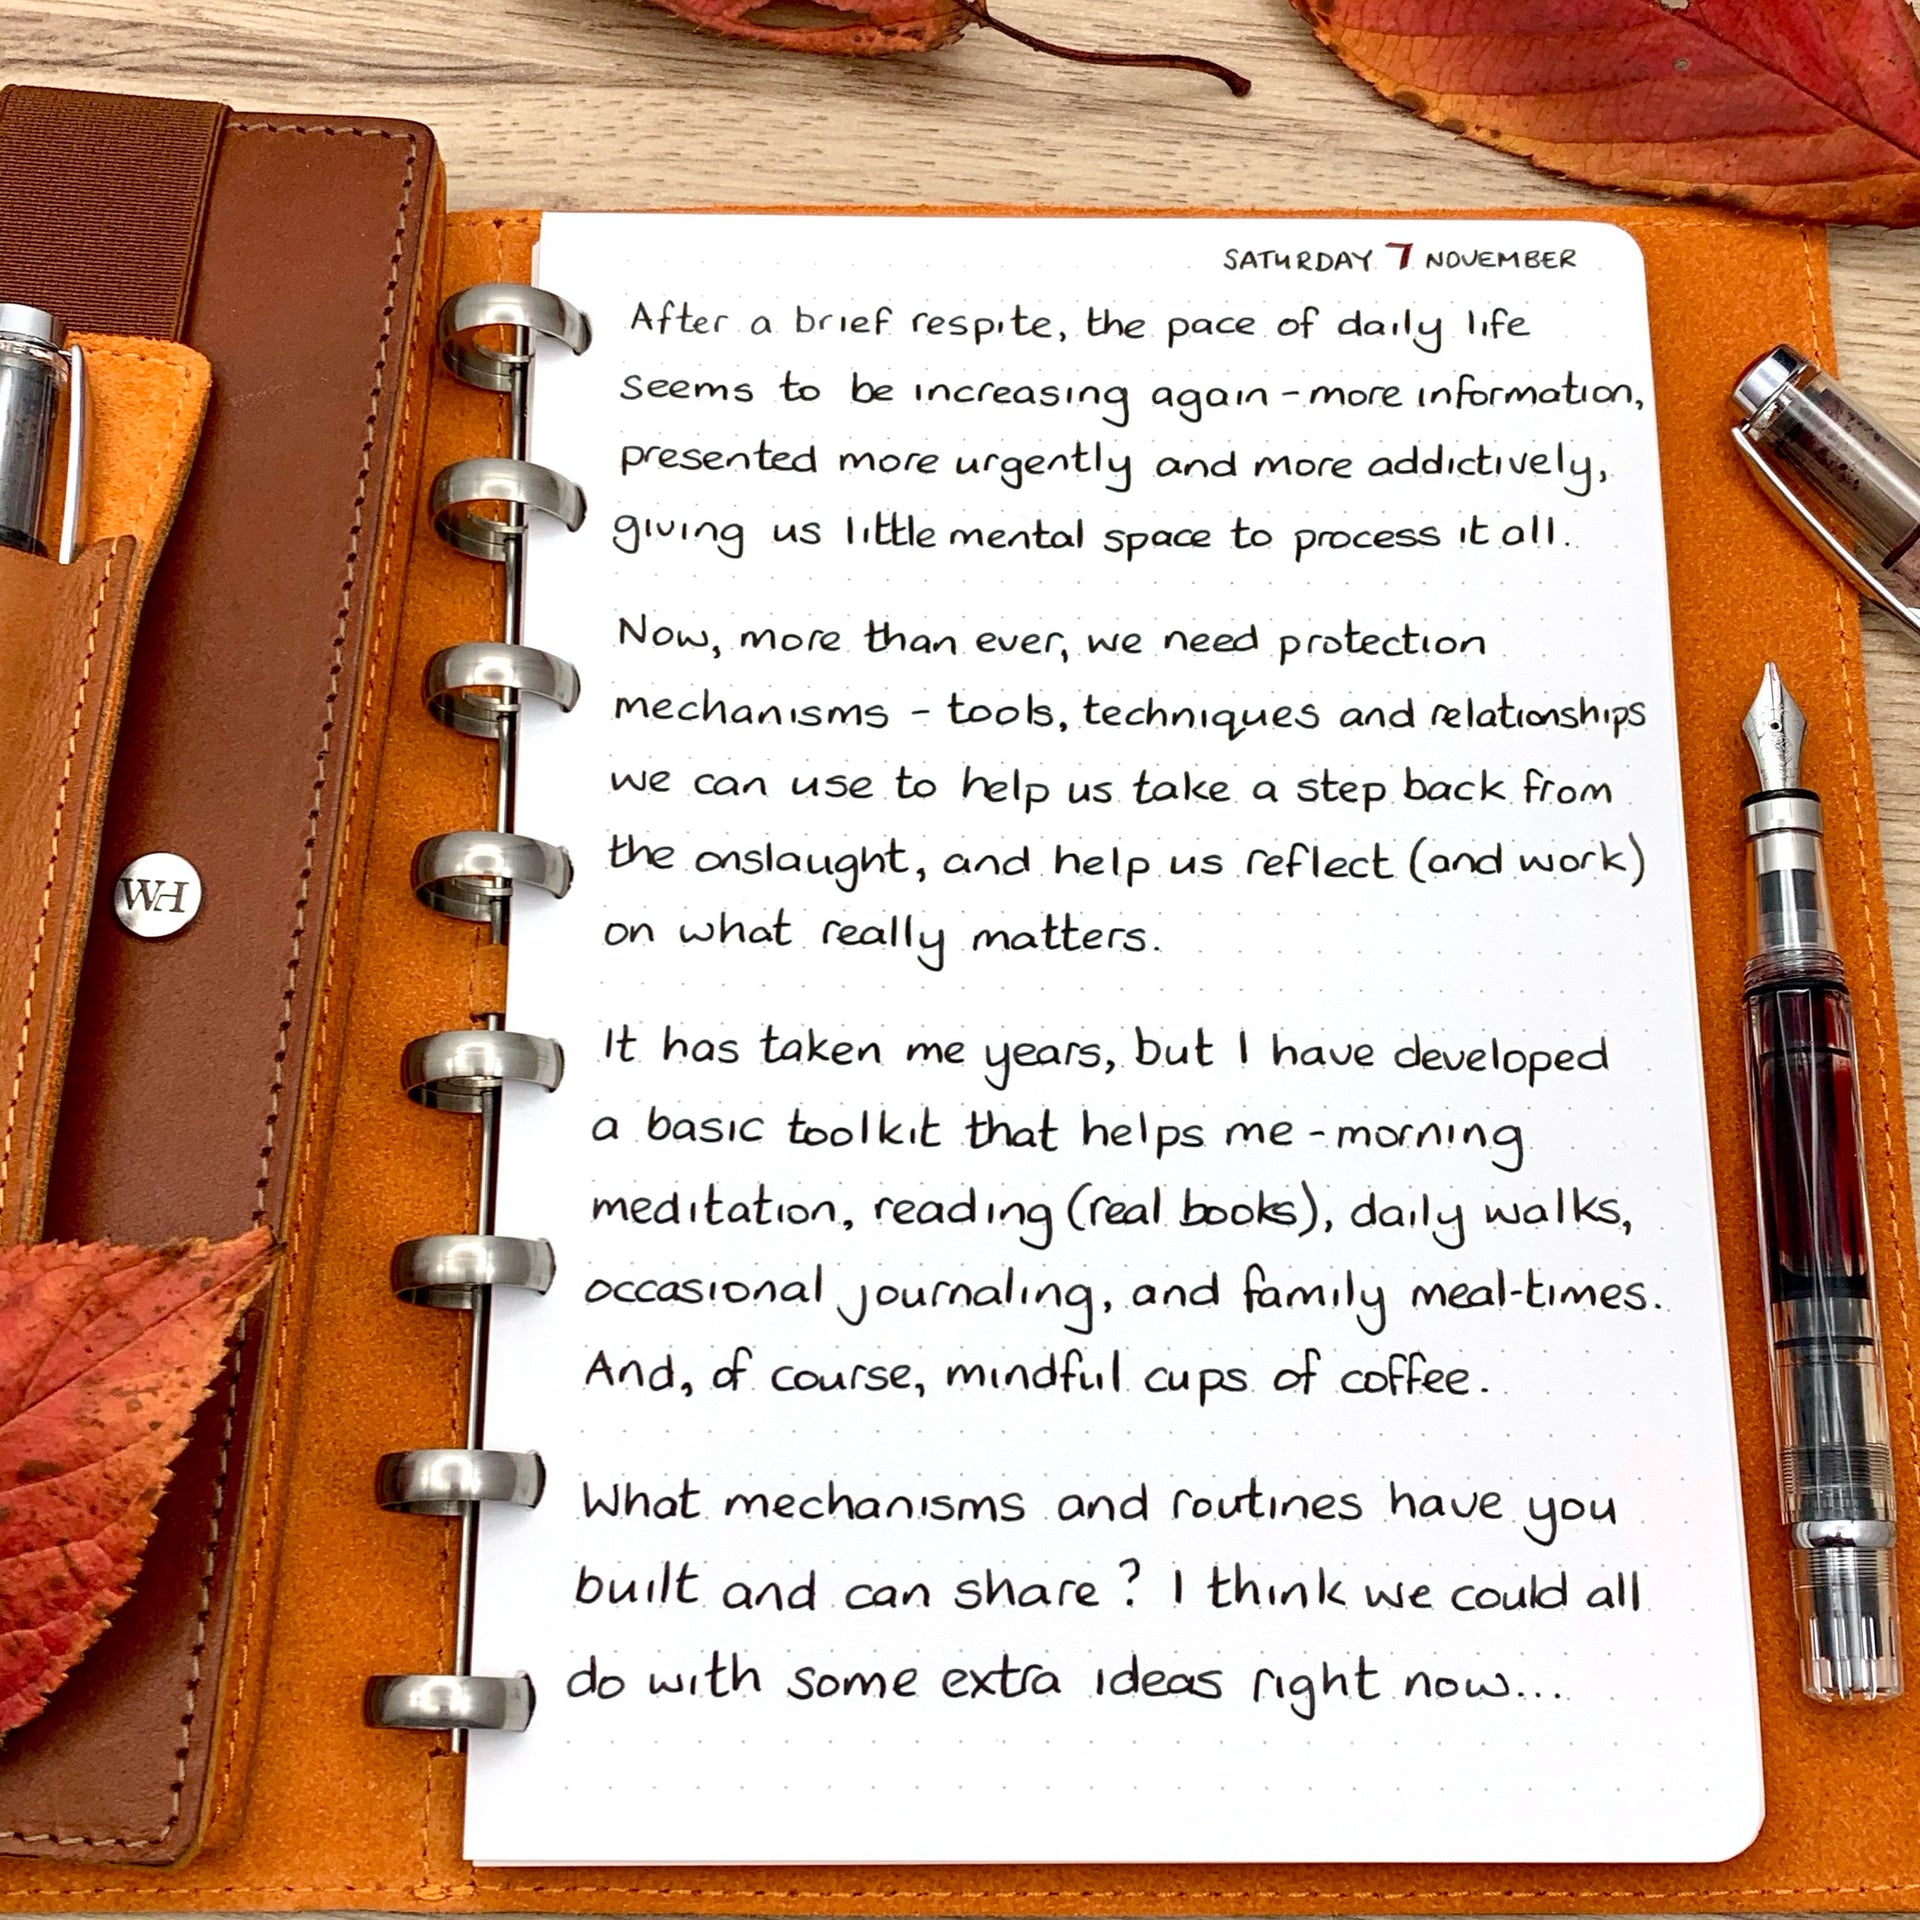 SATURDAY 7 NOVEMBER
After a brief respite, the pace of daily life
seems to be increasing again - more information,
presented more urgently and more addictively,
giving us little mental space to process it all.
Now, more than ever, we need protection
mechanisms - tools, techniques and relationships
we can use to help us take a step back from
the onslaught, and help us reflect (and work)
on what really matters.
It has taken me years, but I have developed
a basic toolkit that helps me - morning
meditation, reading (real books), daily walks,
occasional journaling, and family meal-times.
And, of course, mindful cups of coffee.
What mechanisms and routines have you
built and can share? I think we could all
do with some extra ideas right now...
WH